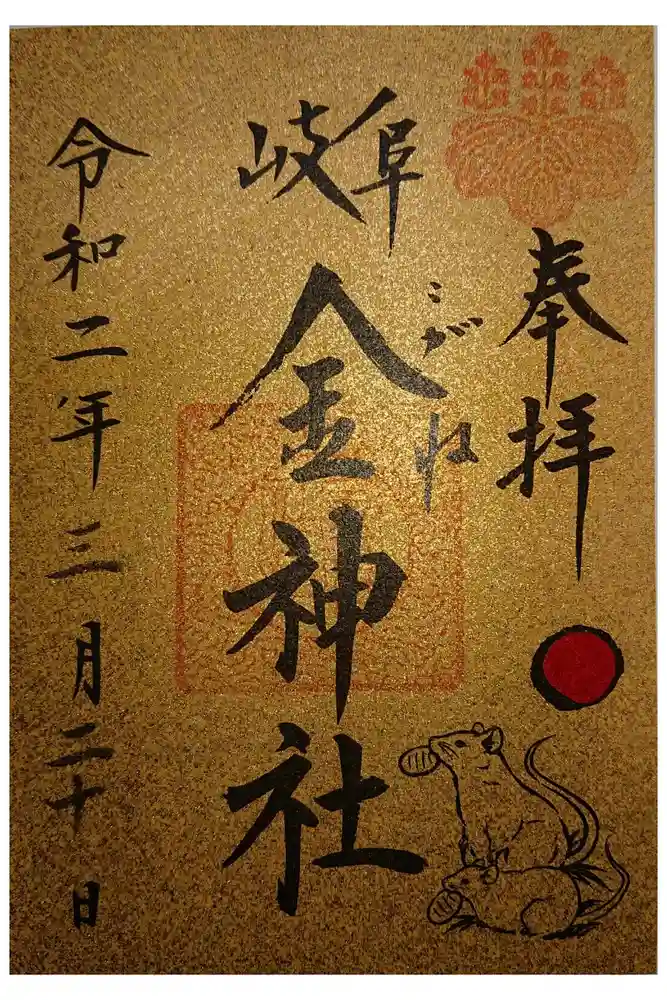 奉拝
岐阜
こがね
金神社
令和二年三月二十日